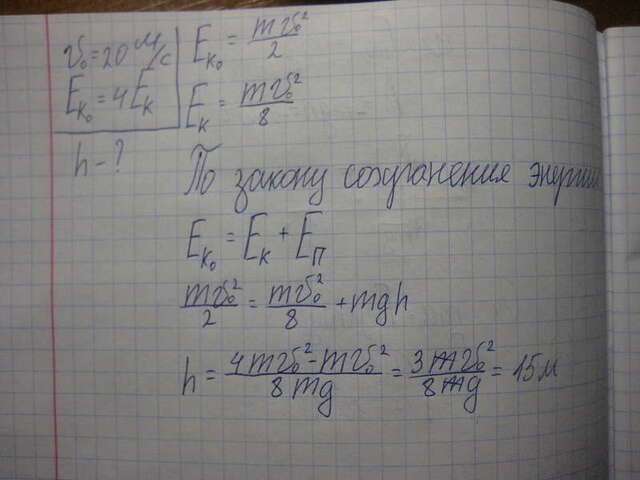 v₀ = 20 м/с
E_K₀ = 4E_K
h - ?
E_K₀ = mv₀²/2
E_K = mv₀²/8
По закону сохранения энергии
E_K₀ = E_K + E_П
mv₀²/2 = mv₀²/8 + mgh
h = (4mv₀² - mv₀²)/8mg = 3mv₀²/8mg = 15м